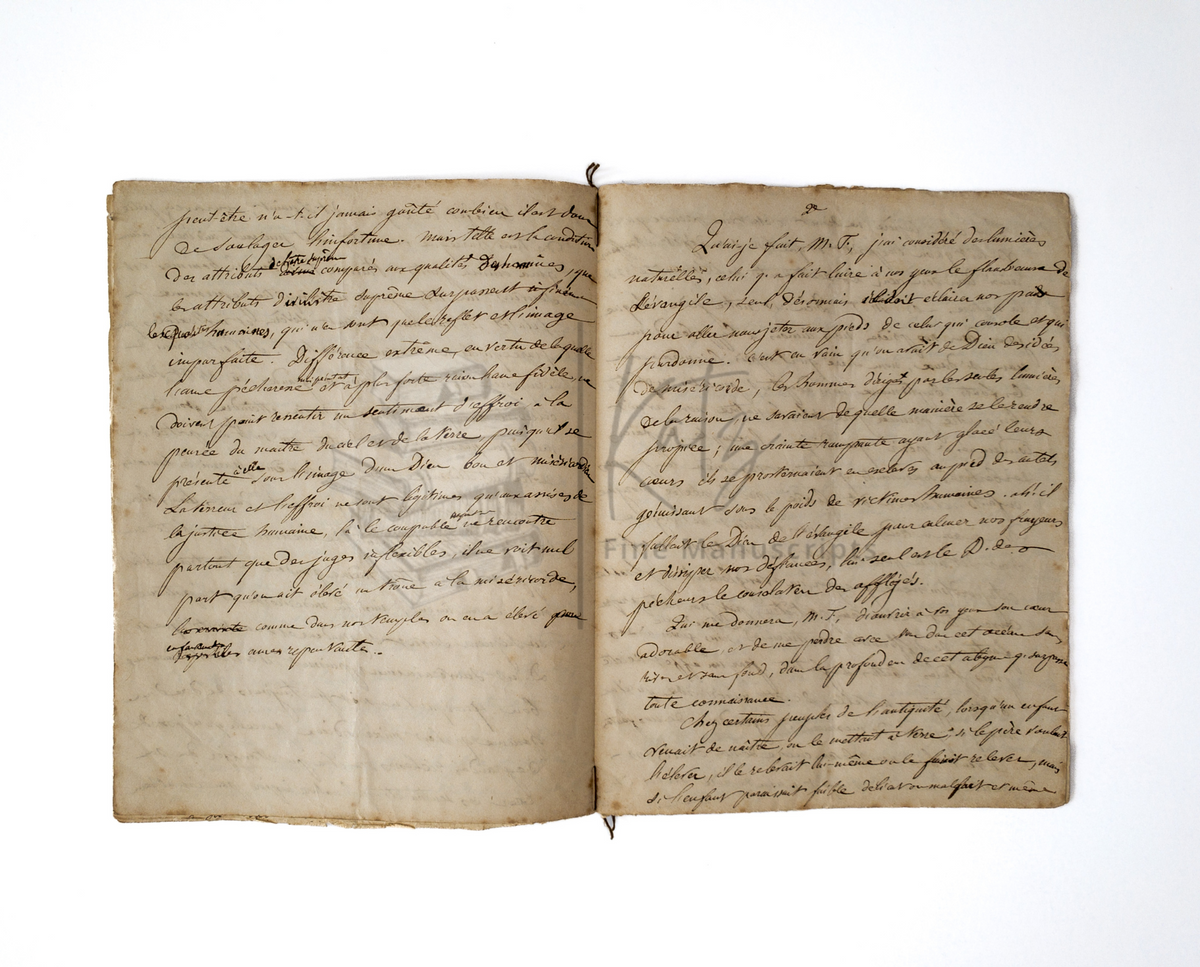 peut-être n'a-t-il jamais goûté combien il est doux
de soulager l'infortune. mais telle est la condition
des attributs de l'être suprême comparés aux qualités des hommes, que
les attributs de l'être suprême surpassent infiniment
les qualités humaines, qui n'en sont que le reflet et l'image
imparfaite. Différence extrême, en vertu de laquelle
l'ame pécheresse et à plus forte raison l'ame fidèle, ne
doivent point ressentir un sentiment d'effroi à la
pensée du maître du ciel et de la terre, puisqu'il se
présente à elle sous l'image d'un Dieu bon et miséricordieux
La terreur et l'effroi ne sont légitimes qu'aux assises de
la justice humaine, là le coupable ne rencontre
partout que des juges inflexibles, il ne voit nul
part qu'on ait élevé un trone à la miséricorde,
comme dans nos temples où on a élevé pour
ames repentantes..
2e
Qu'ai-je fait M. F., j'ai considéré des lumières
naturelles, celui q. a fait luire à vos yeux le flambeau de
L'évangile, seul, désormais doit éclairer nos pas
pour aller nous jeter aux pieds de celui qui console et qui
pardonne. C'est en vain qu'on avait de Dieu des idées
de miséricorde, les hommes dirigés par les seules lumières
de la raison, ne savaient de quelle manière se le rendre
propice; une crainte rampante ayant glacé leurs
cœurs ils se prosternaient en esclaves au pied des autels
gémissant sous le poids de victimes humaines. ah! il
fallait le Dieu de l'évangile pour calmer nos frayeurs
et dissiper nos défiances, lui seul est le D. des
pécheurs le consolateur des affligés.
Qui me donnera, M. F., d'ouvrir à vos yeux son cœur
adorable, et de me perdre avec vous dans cet océan sans
rive et sans fond, dans la profondeur de cet abyme q. surpasse
toute connaissance.
Chez certains peuples de l'antiquité, lorsqu'un enfant
venait de naître, on le mettait à terre; si le père voulait
l'élever, il le relevait lui-même ou le faisait relever, mais
si l'enfant paraissait faible délicat ou malfait et même
Kâ
Fine Manuscripts